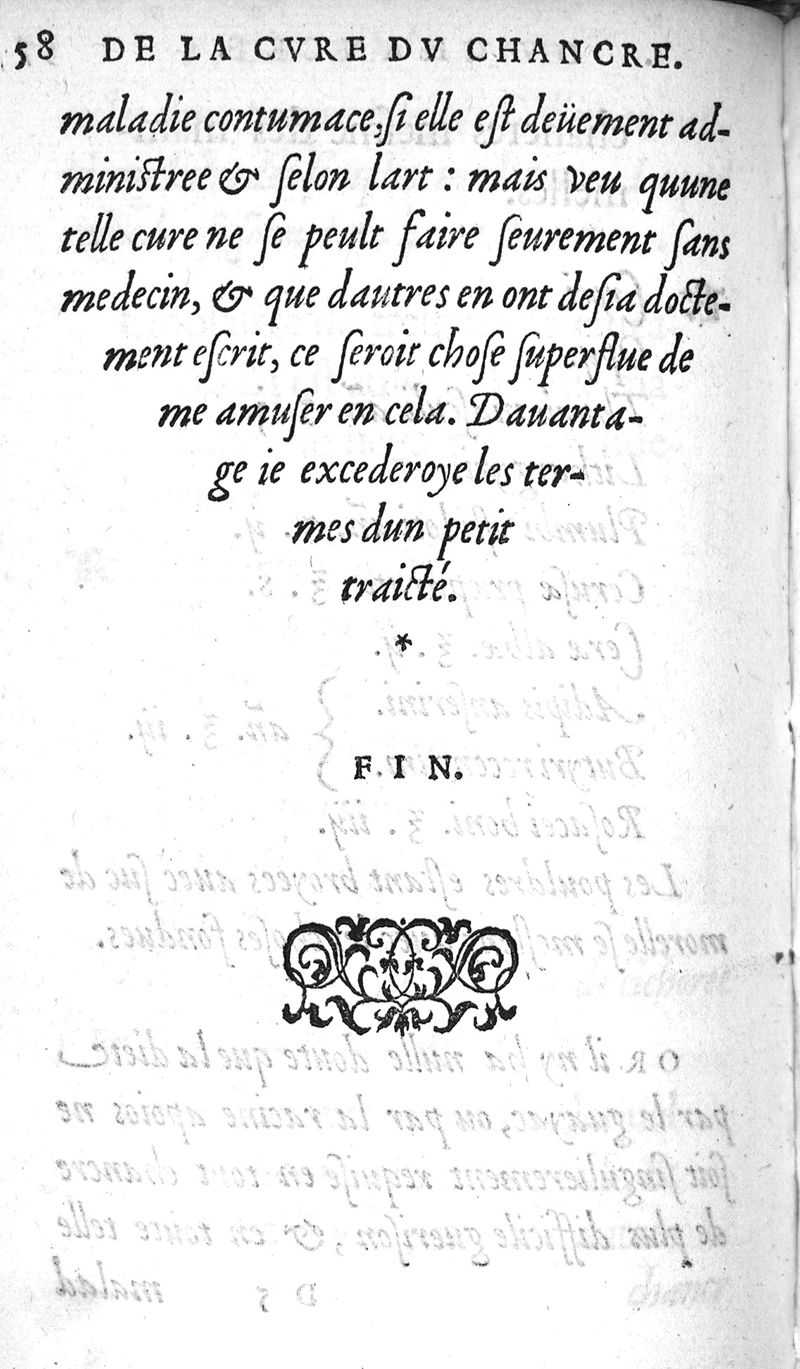 58 DE LA CVRE DV CHANCRE.
maladie contumace, ſi elle eſt deüement ad-
miniſtree & ſelon lart : mais veu quune
telle cure ne ſe peult faire ſeurement ſans
medecin, & que dautres en ont deſia docte-
ment eſcrit, ce ſeroit choſe ſuperflue de
me amuſer en cela. Dauanta-
ge ie excederoye les ter-
mes dun petit
traicté.
*
F I N.